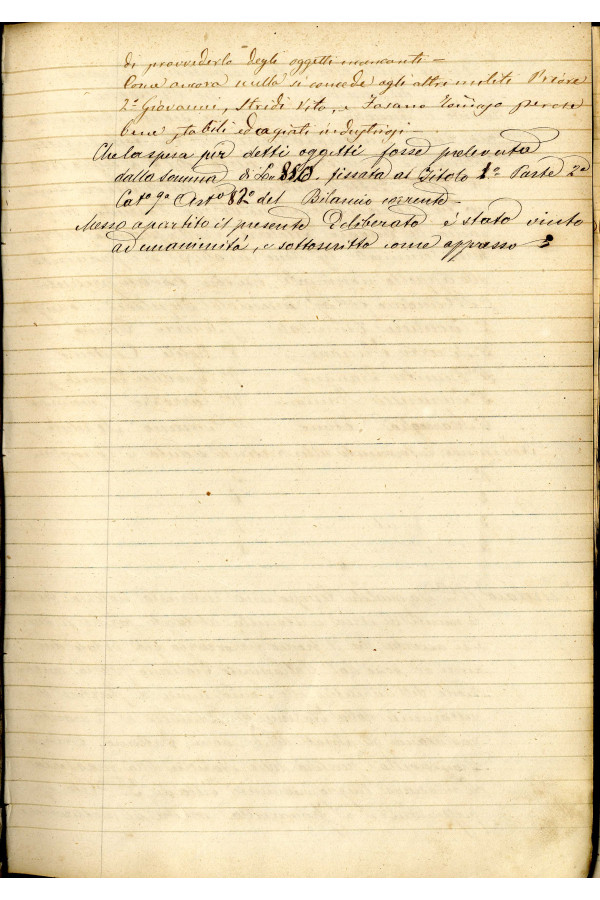 di provvederlo degli oggetti mancanti =
Come ancora nulla si concede agli altri militi Priore
2° Giovanni, Stridi Vito, e Fasano Tommaso perche
bene stabiliti ed agiati industriosi
Che la spesa per detti oggetti fosse prelevata
dalla somma di L. fissata al Titolo 1° Parte 2a
Cat° 9a Art° 82° del Bilancio corrente =
Messo a partito il presente Deliberato é stato vinto
ad unanimitá, e sottoscritto come appresso =